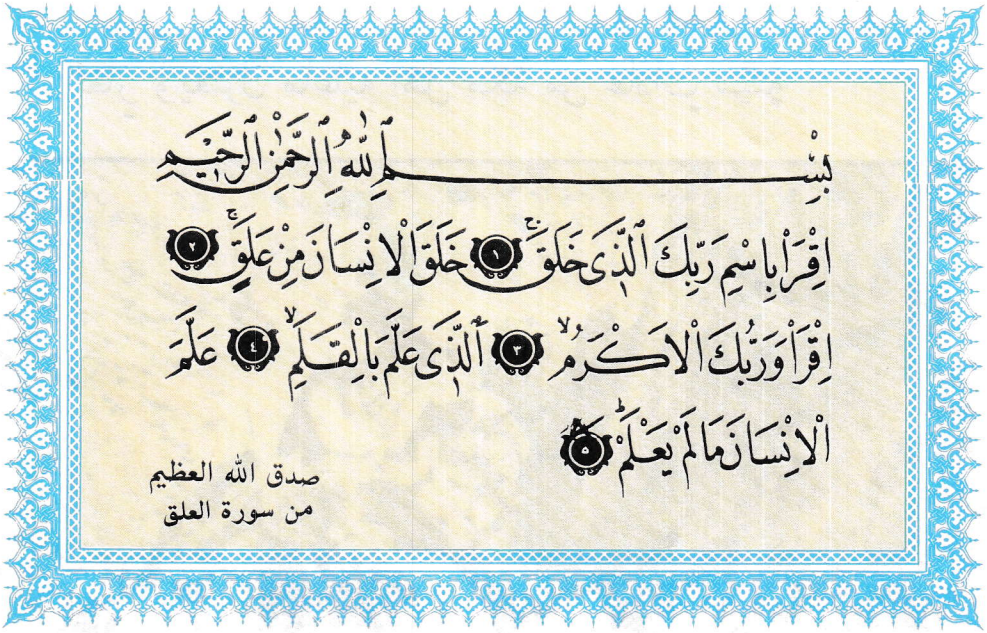 بِسْمِ ٱللّٰهِ ٱلرَّحْمٰنِ ٱلرَّحٖيمِ
اِقْرَاْ بِاسْمِ رَبِّكَ ٱلَّذٖى خَلَقَۚ ١ خَلَقَ الْاِنْسَانَ مِنْ عَلَقٍۚ ٢
اِقْرَاْ وَرَبُّكَ الْاَكْرَمُۙ ٣ ٱلَّذٖى عَلَّمَ بِالْقَلَمِۙ ٤ عَلَّمَ
الْاِنْسَانَ مَا لَمْ يَعْلَمْؕ ٥
صدق الله العظيم
من سورة العلق